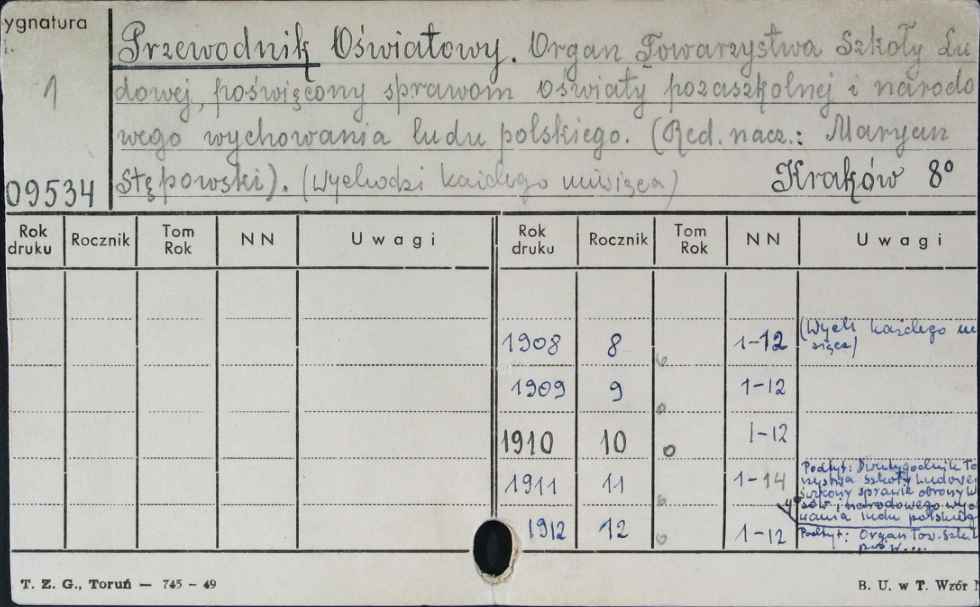 ygnatura
1
09534
Przewodnik Oświatowy. Organ Towarzystwa Szkoły Lu
dowej, poświęcony sprawom oświaty pozaszkolnej i narodo
wego wychowania ludu polskiego. (Red. nacz.: Maryan
Stępowski). (Wychodzi każdego miesiąca) Kraków 8°
Rok druku Rocznik Tom Rok NN Uwagi Rok druku Rocznik Tom Rok NN Uwagi
1908 8 0 1-12 (Wych każdego mie
siąca)
1909 9 0 1-12
1910 10 0 1-12
1911 11 0 1-14 Podtyt: Dwutygodnik To
szkoły ludowe
obrony
narodowego wycho
wania ludu polskiego
1912 12 0 1-12 Podtyt: Organ Tow. Szk
T. Z. G., Toruń — 745 - 49
B. U. w T. Wzór N